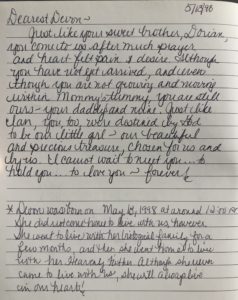 5/13/98
Dearest Devon ~
Just like your sweet brother, Dorian,
you come to us after much prayer
and heart felt pain & desire. Although
you have not yet arrived, and even
though you are not growing and moving
within Mommy's tummy, you are still
ours - your daddy's and mine. Just like
Dorian, you too, were destined by God
to be our little girl - our beautiful
and precious treasure, chosen for us and
by us. I cannot wait to meet you... to
hold you... to love you ~ forever!
* Devon was born on May 14, 1998 at around 12:00
She did not come home to live with us, however.
She went to live with her biological family for a
few months, and then she went home to live
with her Heavenly Father. Although she never
came to live with us, she will always live
in our hearts!